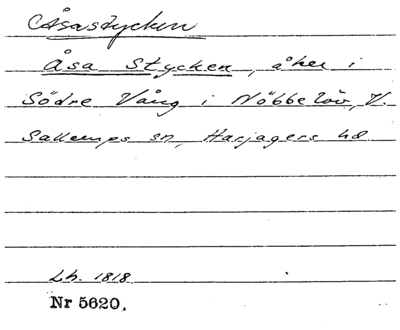 Åsastycken
Åsa Stycken, åker i
Södre Vång i Nöbbelöv, V.
Sallerups sn, Harjagers hd.
Lh. 1818.
Nr 5620.